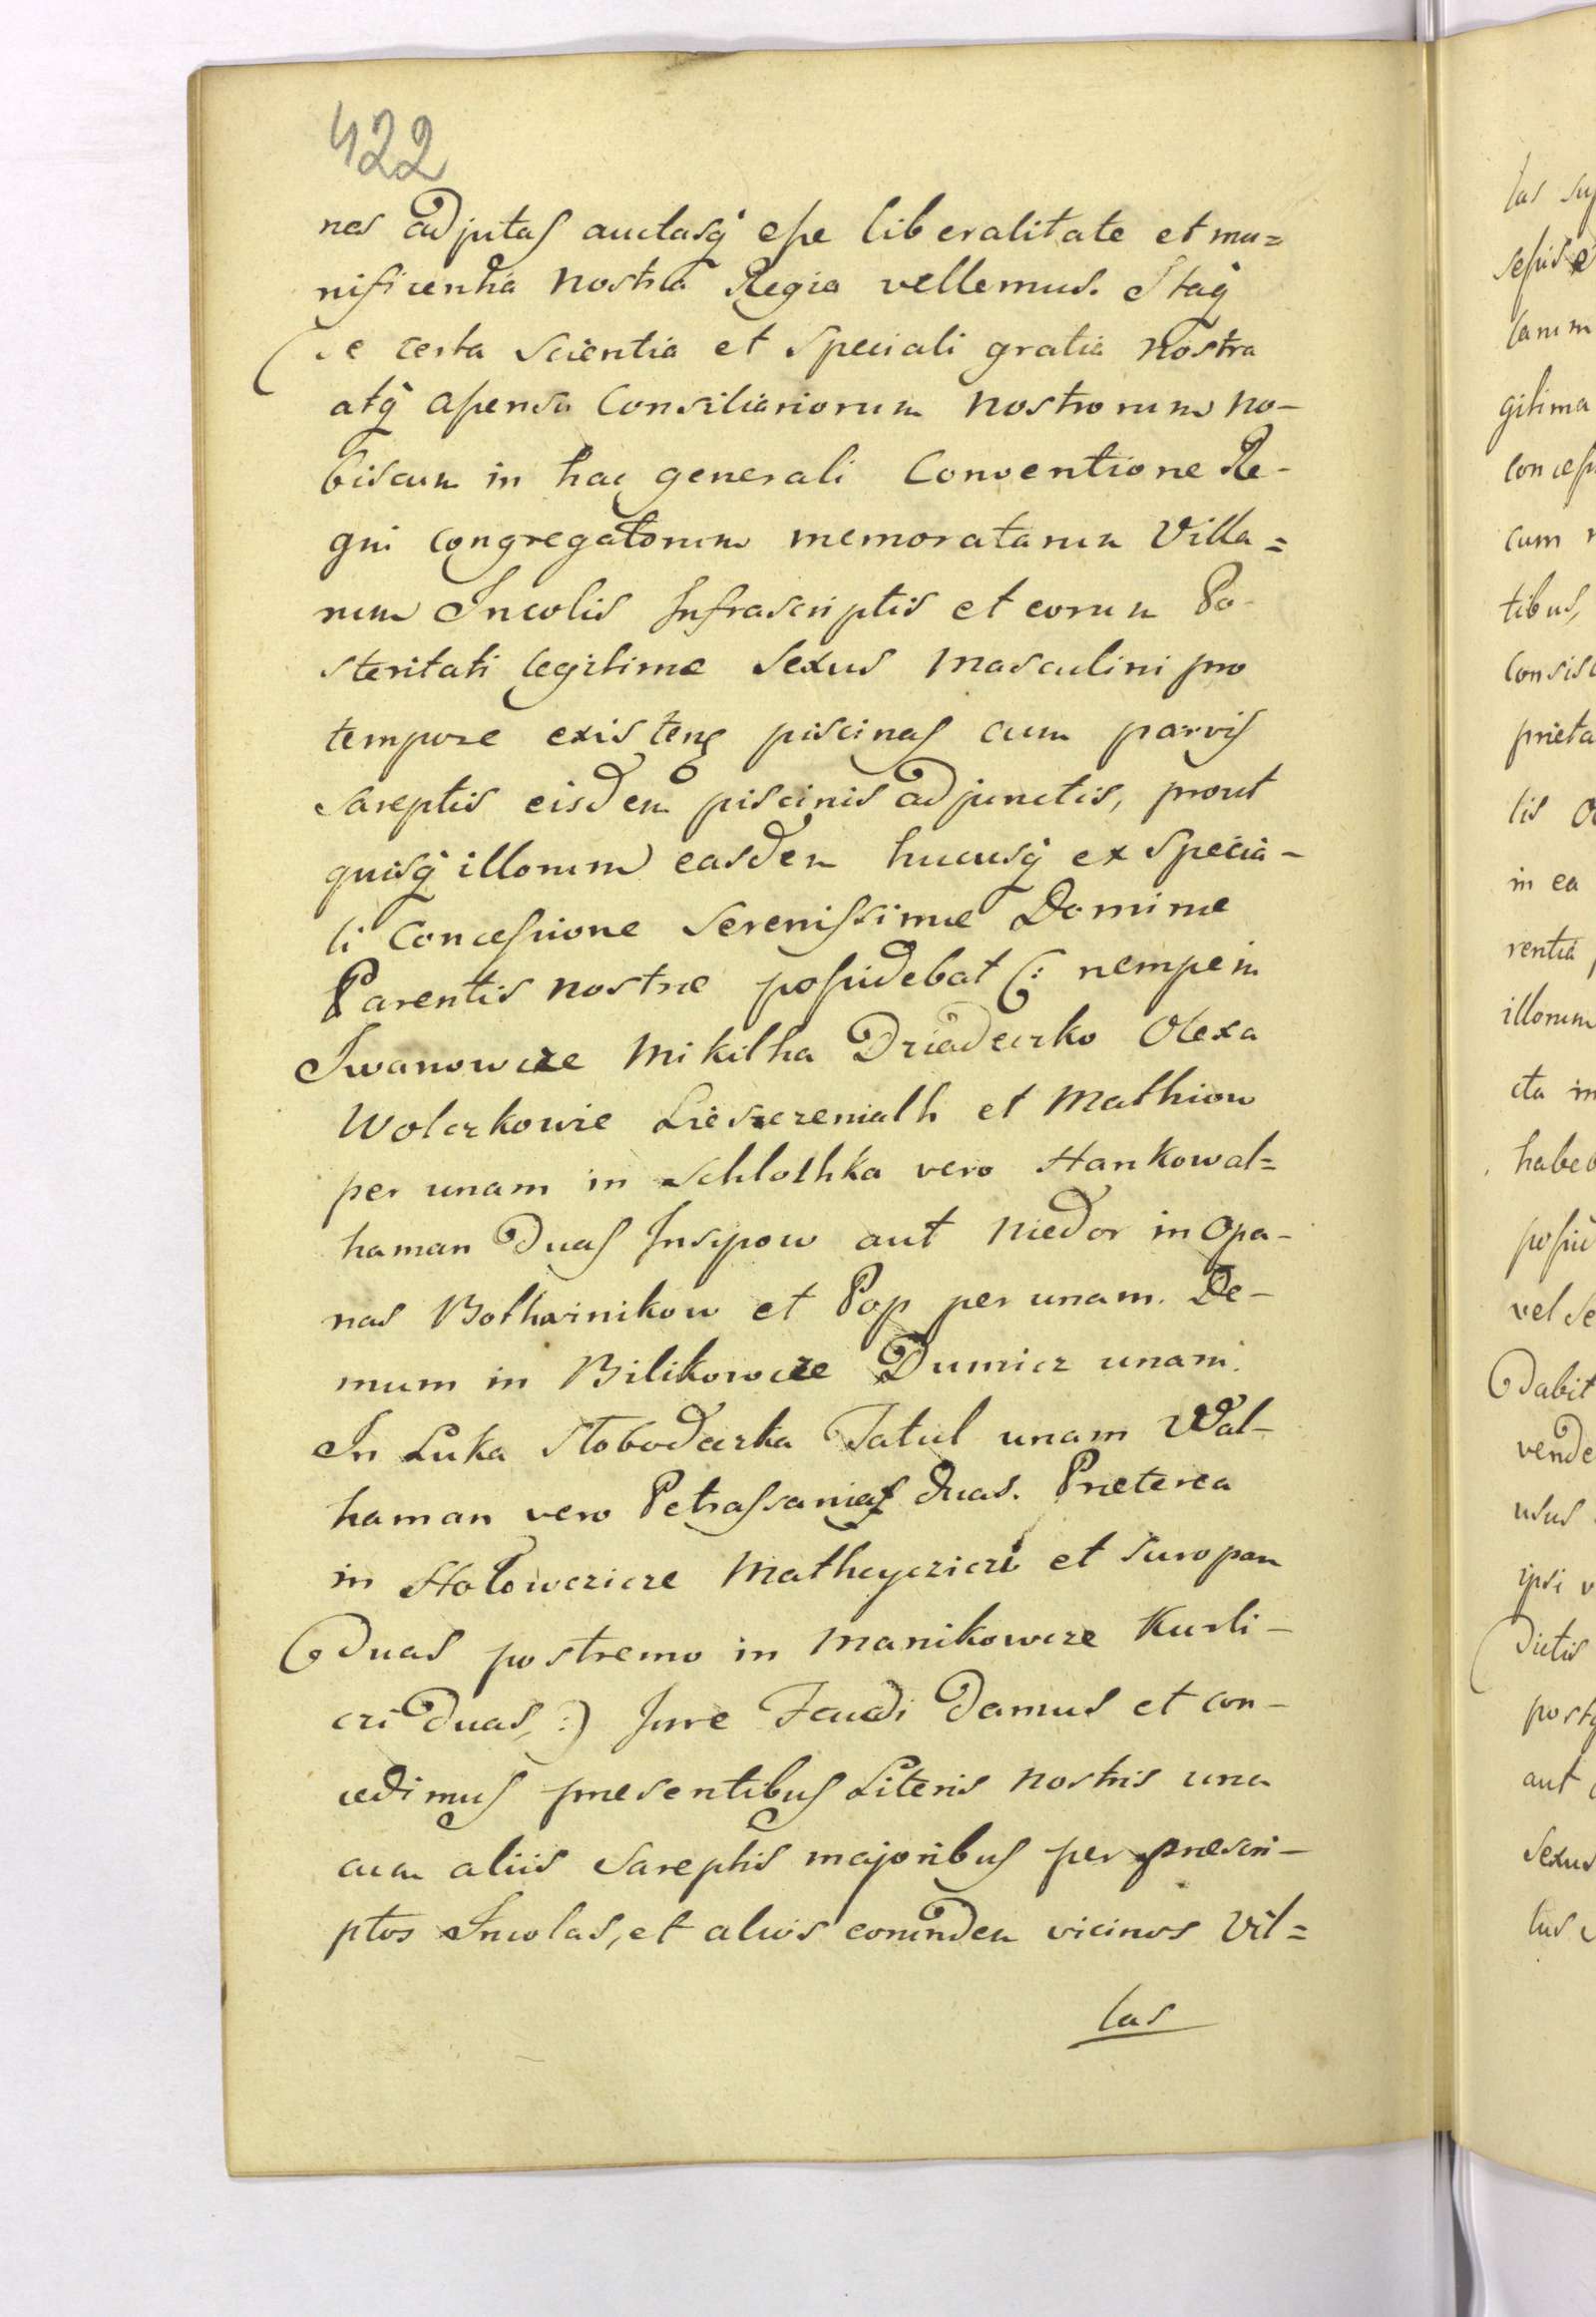 422
nes adjutas auctasq́ esse liberalitate et mu=
nificentia nostra Regia vellemus. Itaq́
de certa scientia et speciali gratia nostra
atq́ assensu Consiliariorum nostrorum no-
biscum in hac generali Conventione Re-
gni congregatorum memoratarum Villa=
rum Incolis Infrascriptis et eorum Po-
steritati legitime sexus masculini pro
tempore existens piscinas cum parvis
sareptis eisdem piscinis adjunctis, prout
quisq́ illorum easdem hucusq́ ex specia-
li Concessione Serenissimæ Dominæ
Parentis nostræ possidebat (: nempe in
Iwanowcze Mikitha Dziadeczko Olexa
Wolczkowie Liesczeniath et Mathiow
per unam in Schlothka vero Hankowal=
haman duas Insipow aut Niedor in Opa-
nas Botharinikow et Pop per unam. De-
mum in Bilikowcze Dumicz unam.
In Luka Słobodeczka Tatul unam Wal-
haman vero Petrassanias duas. Præterea
in Hołowczicze Matheyczicze et Suropan
duas postremo in Manikowcze Kusli-
czi duas, :) Jure Feudi damus et con-
cedimus præsentibus Literis nostris una
cum aliis sareptis majoribus per præscri-
ptos Incolas, et alios eorundem vicinos Vil=
las
las sup
tamm
gitima
concess
cum
tibus,
consis
prieta
lis
in ea
rentia
illorum
cta in
habeb
possid
vel se
dabit
vende
usus
ipsi v
dictis
postq
aut
sexus